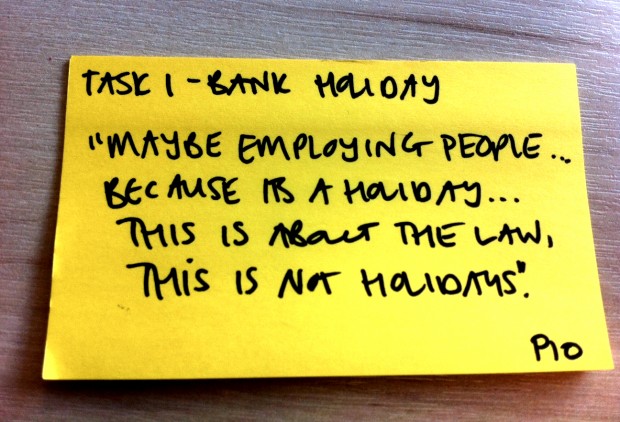 TASK 1 - BANK HOLIDAY
"MAYBE EMPLOYING PEOPLE...
BECAUSE ITS A HOLIDAY...
THIS IS ABOUT THE LAW,
THIS IS NOT HOLIDAYS".
P10